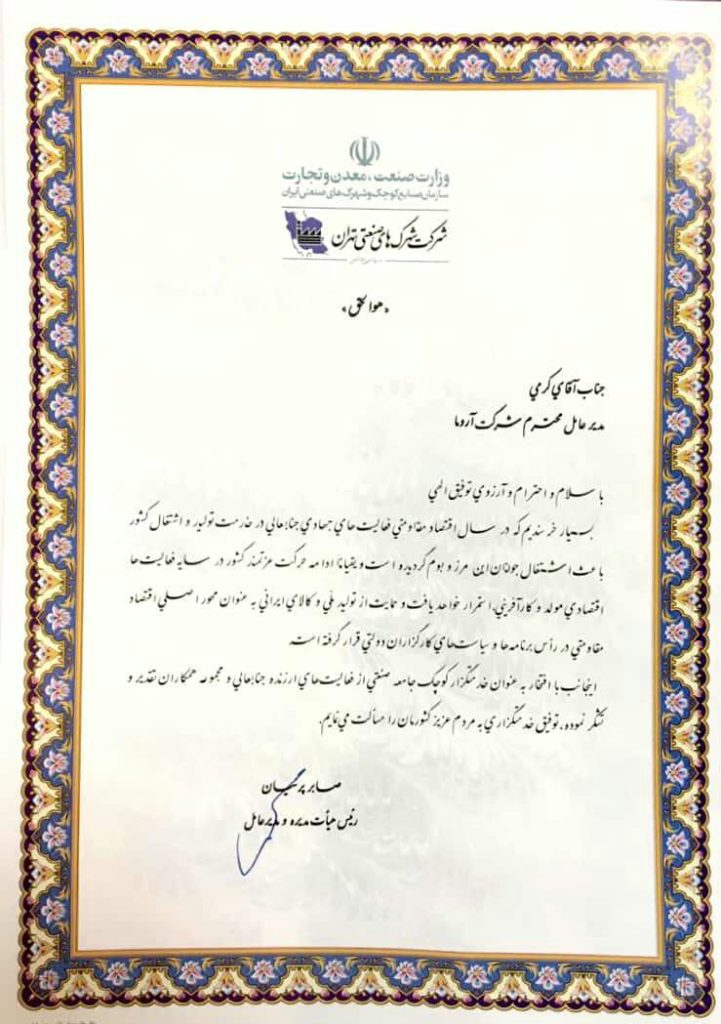 وزارت صنعت، معدن و تجارت
سازمان صنایع کوچک و شهرک‌های صنعتی ایران
شرکت شهرک‌های صنعتی تهران
«هوالحق»
جناب آقای کرمی
مدیر عامل محترم شرکت آروما
با سلام و احترام و آرزوی توفیق الهی
بسیار خرسندیم که در سال اقتصاد مقاومتی فعالیت‌های جهادی جنابعالی در خدمت تولید و اشتغال کشور
باعث اشتغال جوانان این مرز و بوم گردیده است و یقیناً ادامه حرکت عزتمند کشور در سایه فعالیت‌ها
اقتصادی مولد و کارآفرینی، استمرار خواهد یافت و حمایت از تولید ملی و کالای ایرانی به عنوان محور اصلی اقتصاد
مقاومتی در رأس برنامه‌ها و سیاست‌های کارگزاران دولتی قرار گرفته است.
اینجانب با افتخار به عنوان خدمتگزار کوچک جامعه صنعتی از فعالیت‌های ارزنده جنابعالی و مجموعه همکاران تقدیر و
تشکر نموده، توفیق خدمتگزاری به مردم عزیز کشورمان را مسألت می‌نمایم.
صابر پرنیان
رئیس هیأت مدیره و مدیرعامل